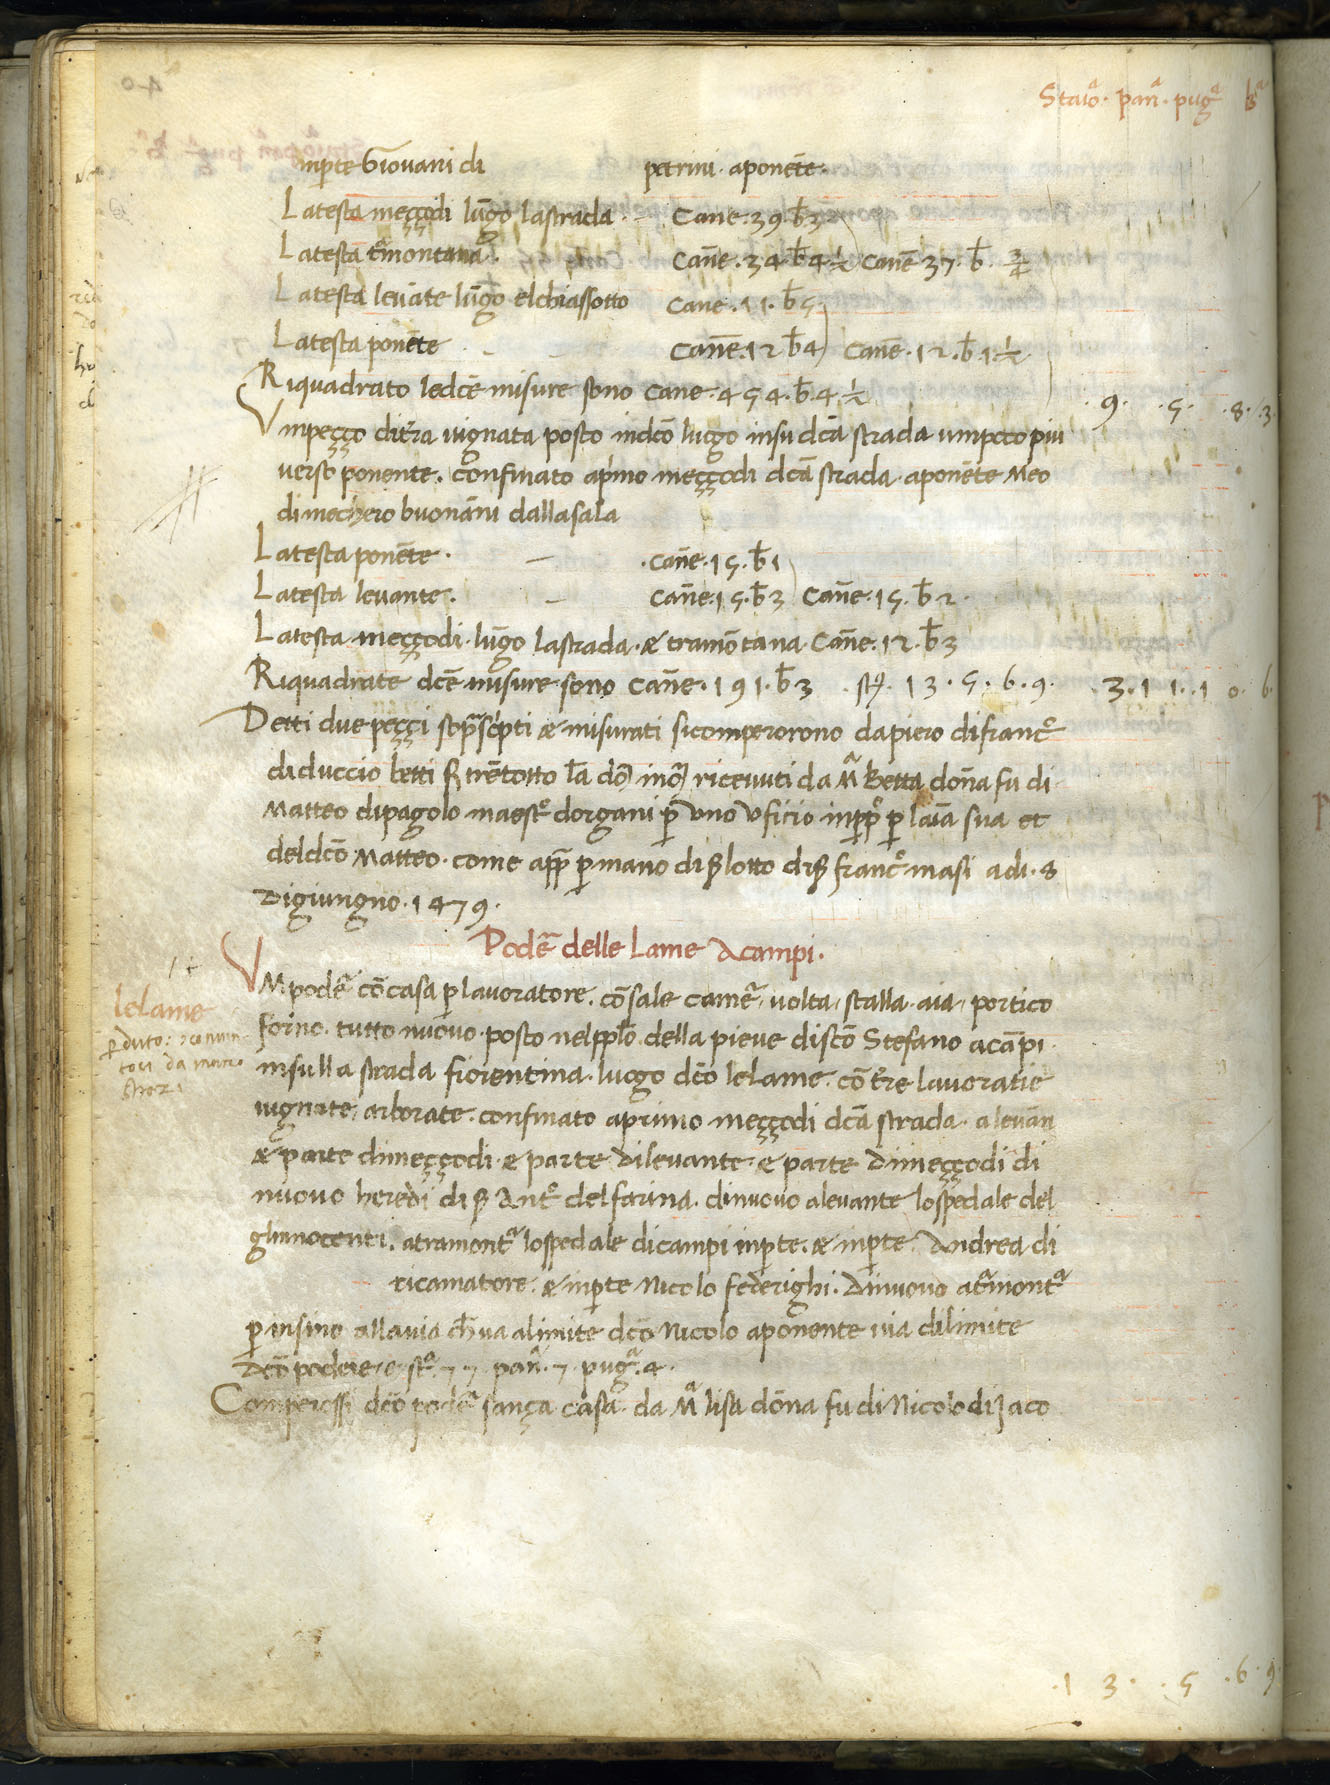 Staioª. panª. pugª bª
inp̄te Giovani di petrini. aponēte.
Latesta meççodi lūgo lastrada. Cane. 39 b̄ 3
Latesta t̄montana. Cañe. 34. b̄ 4. ½ Cane 37. b̄ ¾
Latesta levāte lūgo elchiassotto Cane. 11. b̄ 5
Latesta ponēte Cañe. 12 b̄ 4 Cañe. 12. b̄ 1 ½
Riquadrato ledc̄e misure sono Cane. 454. b̄. 4 ½ . 9. . 5. . 8. 3.
Vmpeçço dit̄ra vignata posto indc̄o luogo insu dc̄a strada umpoco piu
verso ponente. confinato ap̄mo meççodi dc̄a strada. aponēte Meo
di mechero buonāni dallasala
Latesta ponēte. – . Cañe. 15. b̄ 1
Latesta levante. – Cañe. 15. b̄ 3 Cañe. 15. b̄ 2.
Latesta. meççodi. lūgo lastrada. & tramōtana. Cañe. 12. b̄ 3
Riquadrate dc̄e misure sono Cañe. 191. b̄ 3 . st. 13. 5. 6. 9. . 3. 11. . 1 0. 6.
Detti due peççi sop̄asc̄pti & misurati sicomperorono dapiero difrancº
diduccio betti f̄ trētotto ricevuti da Mª Betta doña fu di
Matteo dipagolo maestº dorgani p̄ uno uficio inp̄pº p̄ laīa sua et
deldc̄o Matteo. come app̄ p̄ mano di s̄ lotto di s̄ francº masi adi. 8
Digiungno. 1479.
Podeª delle Lame Acampi.
VMpodeª cōcasa p̄ lavoratore. cōsale cameª, volta, stalla. aia, portico
lelame
forno. tutto nuōvo. posto nelpp̄lo della pieve discō Stefano acāpi.
p̄duto:
insulla strada fiorentina. luogo dc̄o lelame. cō t̄re lavoratie
vignate, arborate. confinato aprimo meççodi dc̄a strada. alevān
& parte dimeççodi. & parte dilevante. & parte dimeççodi di
nuovo heredi di s̄ Antº delfarina. dinuovo alevante lospedale del
ghinnocenti. atramontª lospedale dicampi inp̄te. & inp̄te. Andrea di
ricamatore. & inp̄te Nicolo federighi. Dinuovo at̄montª
p̄ insino allavia ch̄ va alimite dc̄o Nicolo aponente via dilimite
dc̄o podere, e stª. 77. panª. 7. pugª. 4.
Comperossi dc̄o podeª sança casa. da Mª lisa dōna fu di Nicolo di Jaco
. 1 3. . 5 . 6. 9.